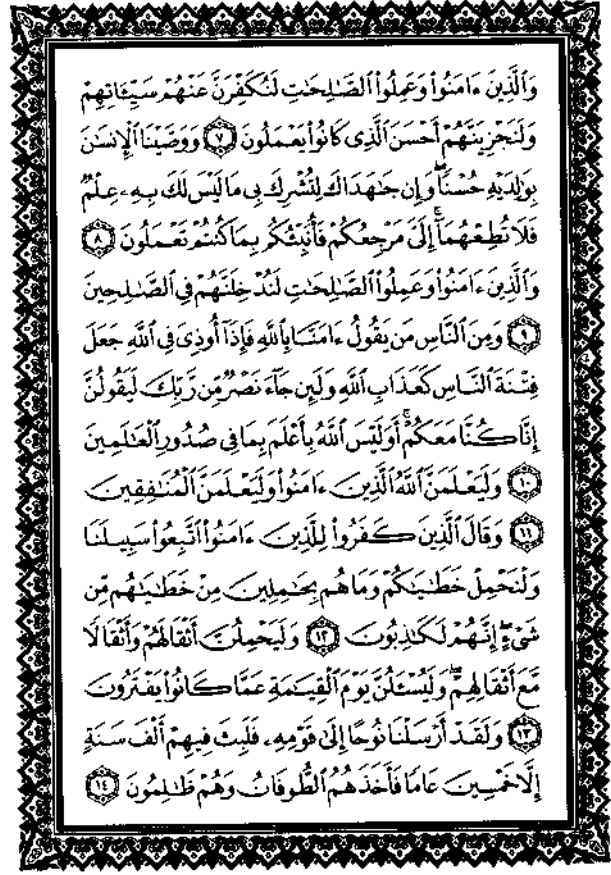 وَٱلَّذِينَ ءَامَنُوا۟ وَعَمِلُوا۟ ٱلصَّٰلِحَٰتِ لَنُكَفِّرَنَّ عَنْهُمْ سَيِّـَٔاتِهِمْ
وَلَنَجْزِيَنَّهُمْ أَحْسَنَ ٱلَّذِى كَانُوا۟ يَعْمَلُونَ ٧ وَوَصَّيْنَا ٱلْإِنسَٰنَ
بِوَٰلِدَيْهِ حُسْنًا ۖ وَإِن جَٰهَدَاكَ لِتُشْرِكَ بِى مَا لَيْسَ لَكَ بِهِۦ عِلْمٌ
فَلَا تُطِعْهُمَآ ۚ إِلَىَّ مَرْجِعُكُمْ فَأُنَبِّئُكُم بِمَا كُنتُمْ تَعْمَلُونَ ٨
وَٱلَّذِينَ ءَامَنُوا۟ وَعَمِلُوا۟ ٱلصَّٰلِحَٰتِ لَنُدْخِلَنَّهُمْ فِى ٱلصَّٰلِحِينَ
٩ وَمِنَ ٱلنَّاسِ مَن يَقُولُ ءَامَنَّا بِٱللَّهِ فَإِذَآ أُوذِىَ فِى ٱللَّهِ جَعَلَ
فِتْنَةَ ٱلنَّاسِ كَعَذَابِ ٱللَّهِ وَلَئِن جَآءَ نَصْرٌ مِّن رَّبِّكَ لَيَقُولُنَّ
إِنَّا كُنَّا مَعَكُمْ ۚ أَوَلَيْسَ ٱللَّهُ بِأَعْلَمَ بِمَا فِى صُدُورِ ٱلْعَٰلَمِينَ
١٠ وَلَيَعْلَمَنَّ ٱللَّهُ ٱلَّذِينَ ءَامَنُوا۟ وَلَيَعْلَمَنَّ ٱلْمُنَٰفِقِينَ
١١ وَقَالَ ٱلَّذِينَ كَفَرُوا۟ لِلَّذِينَ ءَامَنُوا۟ ٱتَّبِعُوا۟ سَبِيلَنَا
وَلْنَحْمِلْ خَطَٰيَٰكُمْ وَمَا هُم بِحَٰمِلِينَ مِنْ خَطَٰيَٰهُم مِّن
شَىْءٍ ۖ إِنَّهُمْ لَكَٰذِبُونَ ١٢ وَلَيَحْمِلُنَّ أَثْقَالَهُمْ وَأَثْقَالًا
مَّعَ أَثْقَالِهِمْ ۖ وَلَيُسْـَٔلُنَّ يَوْمَ ٱلْقِيَٰمَةِ عَمَّا كَانُوا۟ يَفْتَرُونَ
١٣ وَلَقَدْ أَرْسَلْنَا نُوحًا إِلَىٰ قَوْمِهِۦ فَلَبِثَ فِيهِمْ أَلْفَ سَنَةٍ
إِلَّا خَمْسِينَ عَامًا فَأَخَذَهُمُ ٱلطُّوفَانُ وَهُمْ ظَٰلِمُونَ ١٤